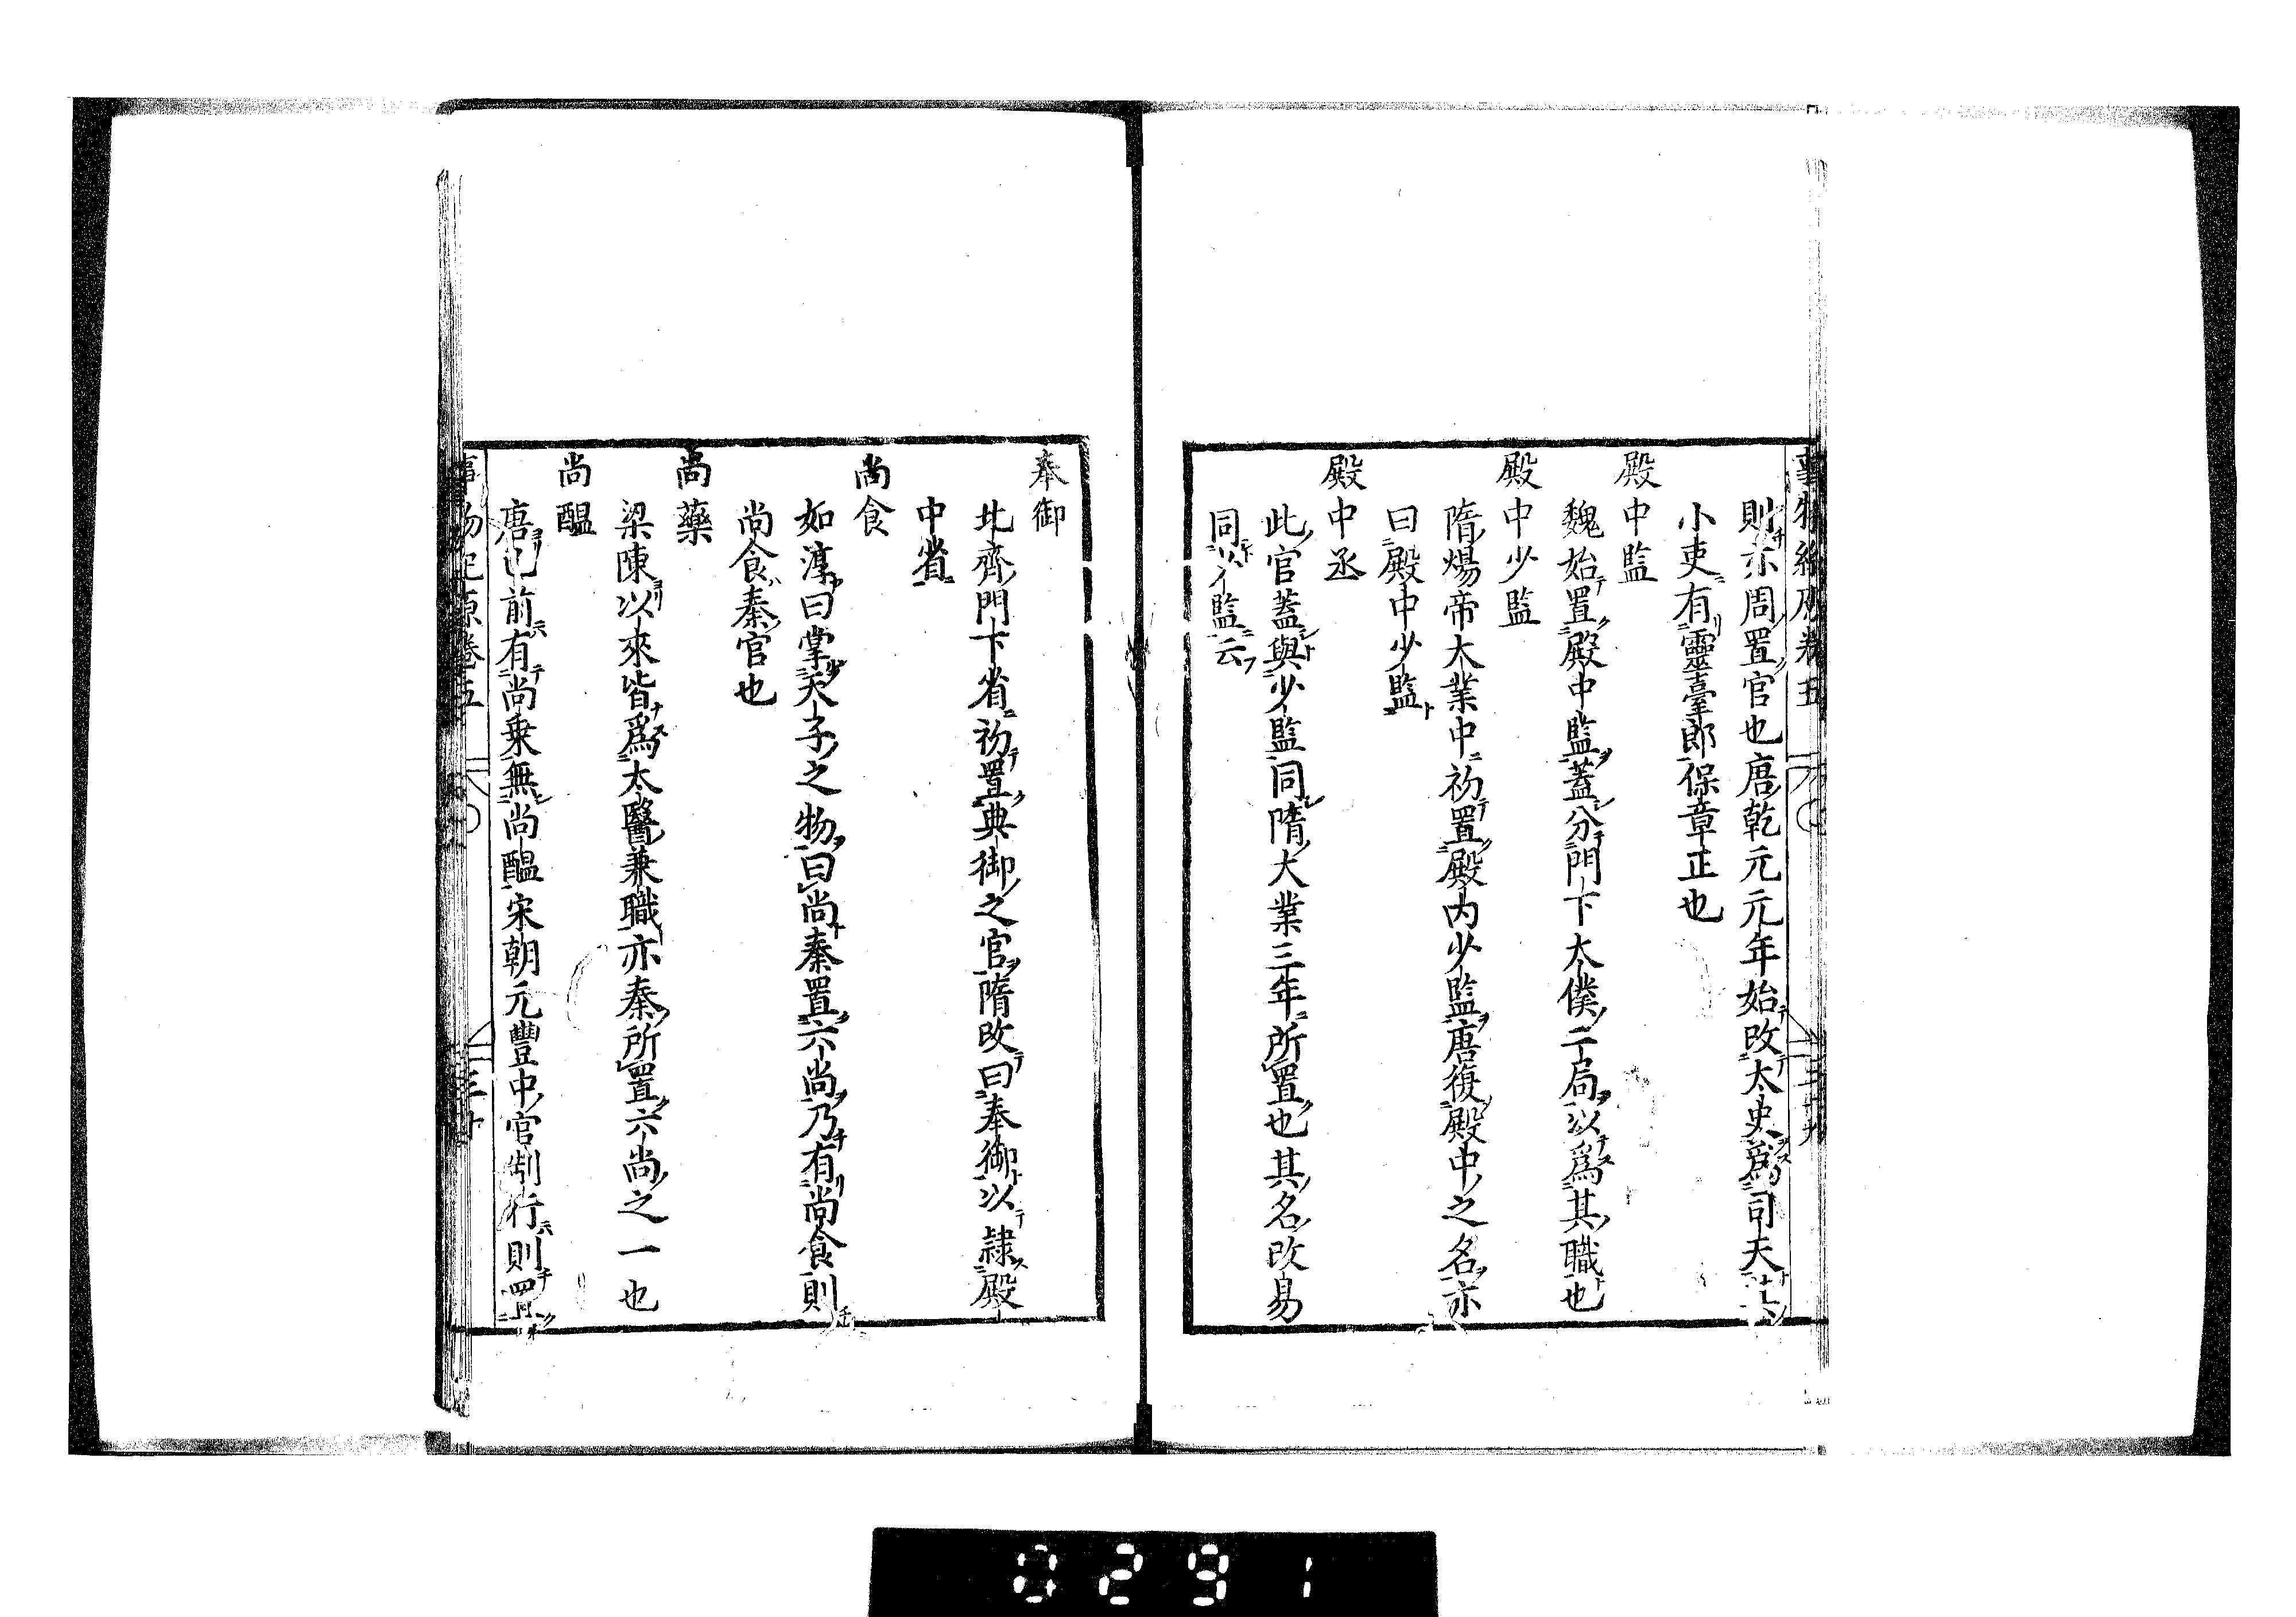 則亦周置官也唐乾元元年始改太史爲司天其
小吏有靈臺郎保章正也
殿中監
魏始置殿中監蓋分門下太僕二局以爲其職也
殿中少監
隋煬帝大業中初置殿内少監唐復殿中之名亦
曰殿中少監
殿中丞
此官蓋與少監同隋大業三年所置也其名改易
同少監云
奉御
北齊門下省初置典御之官隋改曰奉御以隷殿
中省
尚食
如淳曰掌天子之物曰尚秦置六尚乃有尚食則
尚食秦官也
尚藥
梁陳以來皆爲太醫兼職亦秦所置六尚之一也
尚醖
唐已前有尚乗無尚醖宋朝元豐中官制行則置
事物紀原卷五
0291